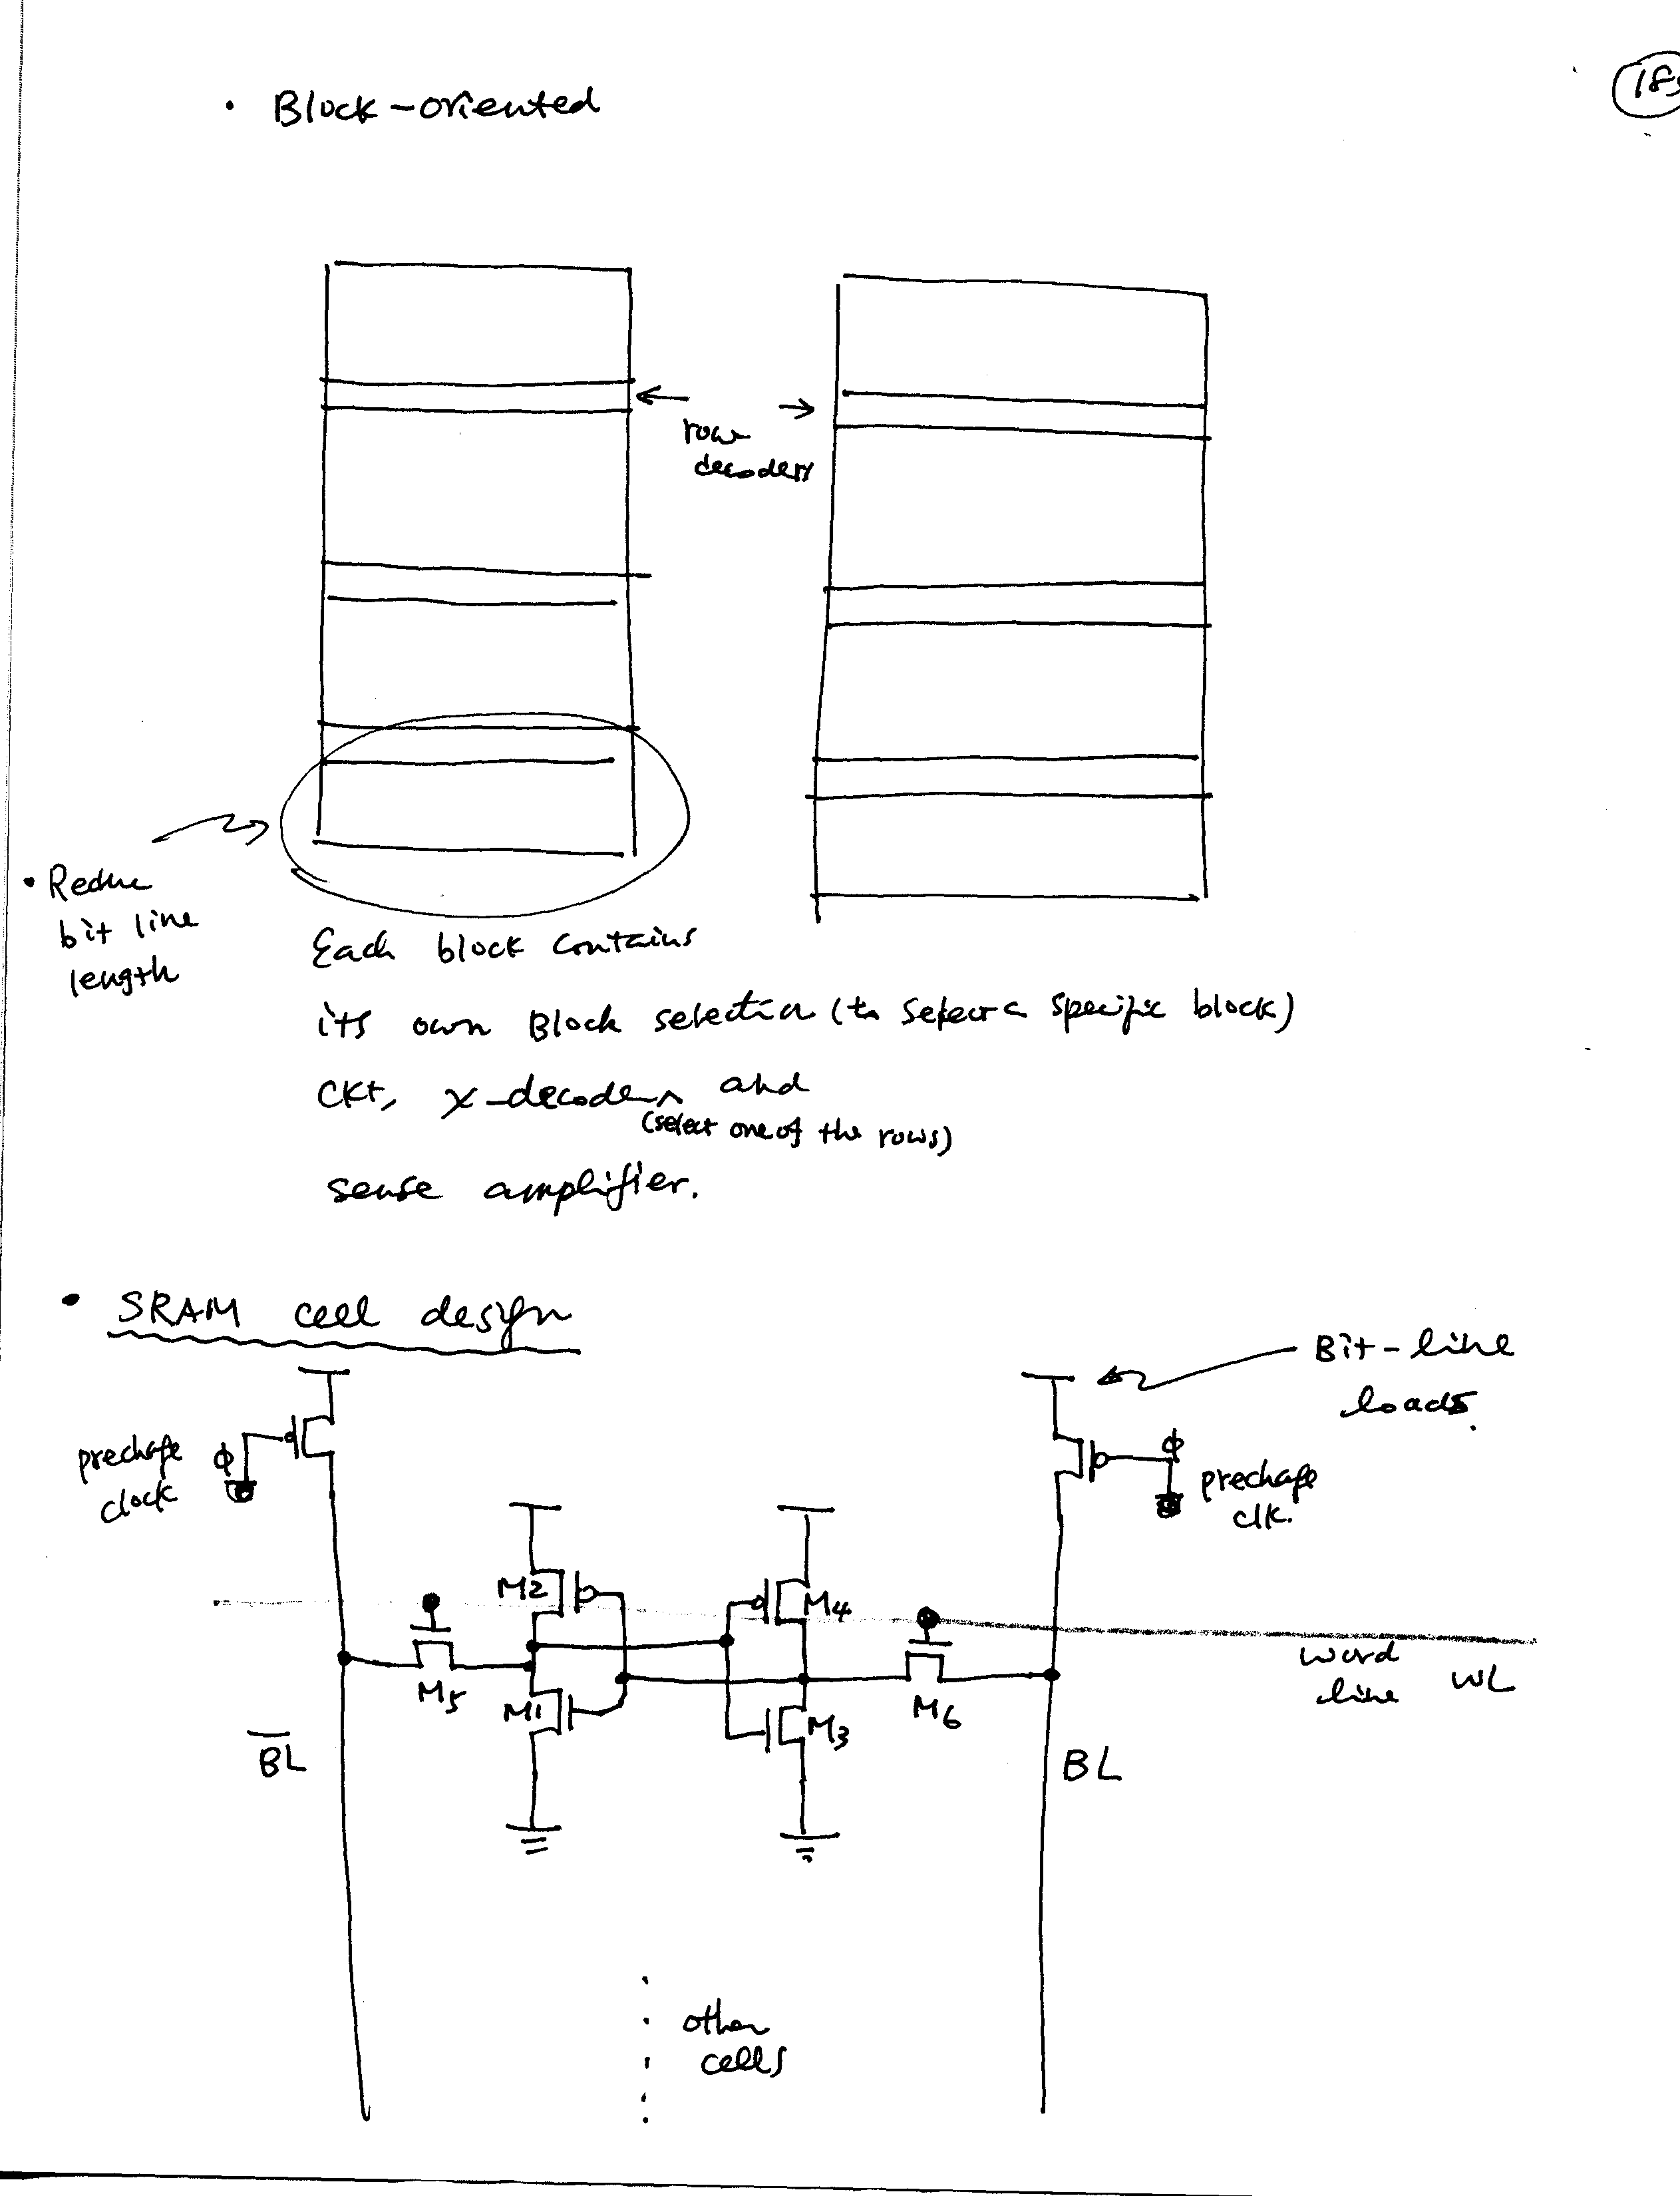 • Block-oriented
row
decoders
• Reduce
bit line
length
Each block contains
its own Block selection (to select a specific block)
ckt, x-decoder, and
(select one of the rows)
sense amplifier.
• SRAM cell design
Bit-line
loads.
precharge
clock
ϕ
ϕ
precharge
clk.
M2
M4
M5
M1
M3
M6
word
line
WL
B̅L̅
BL
other
cells